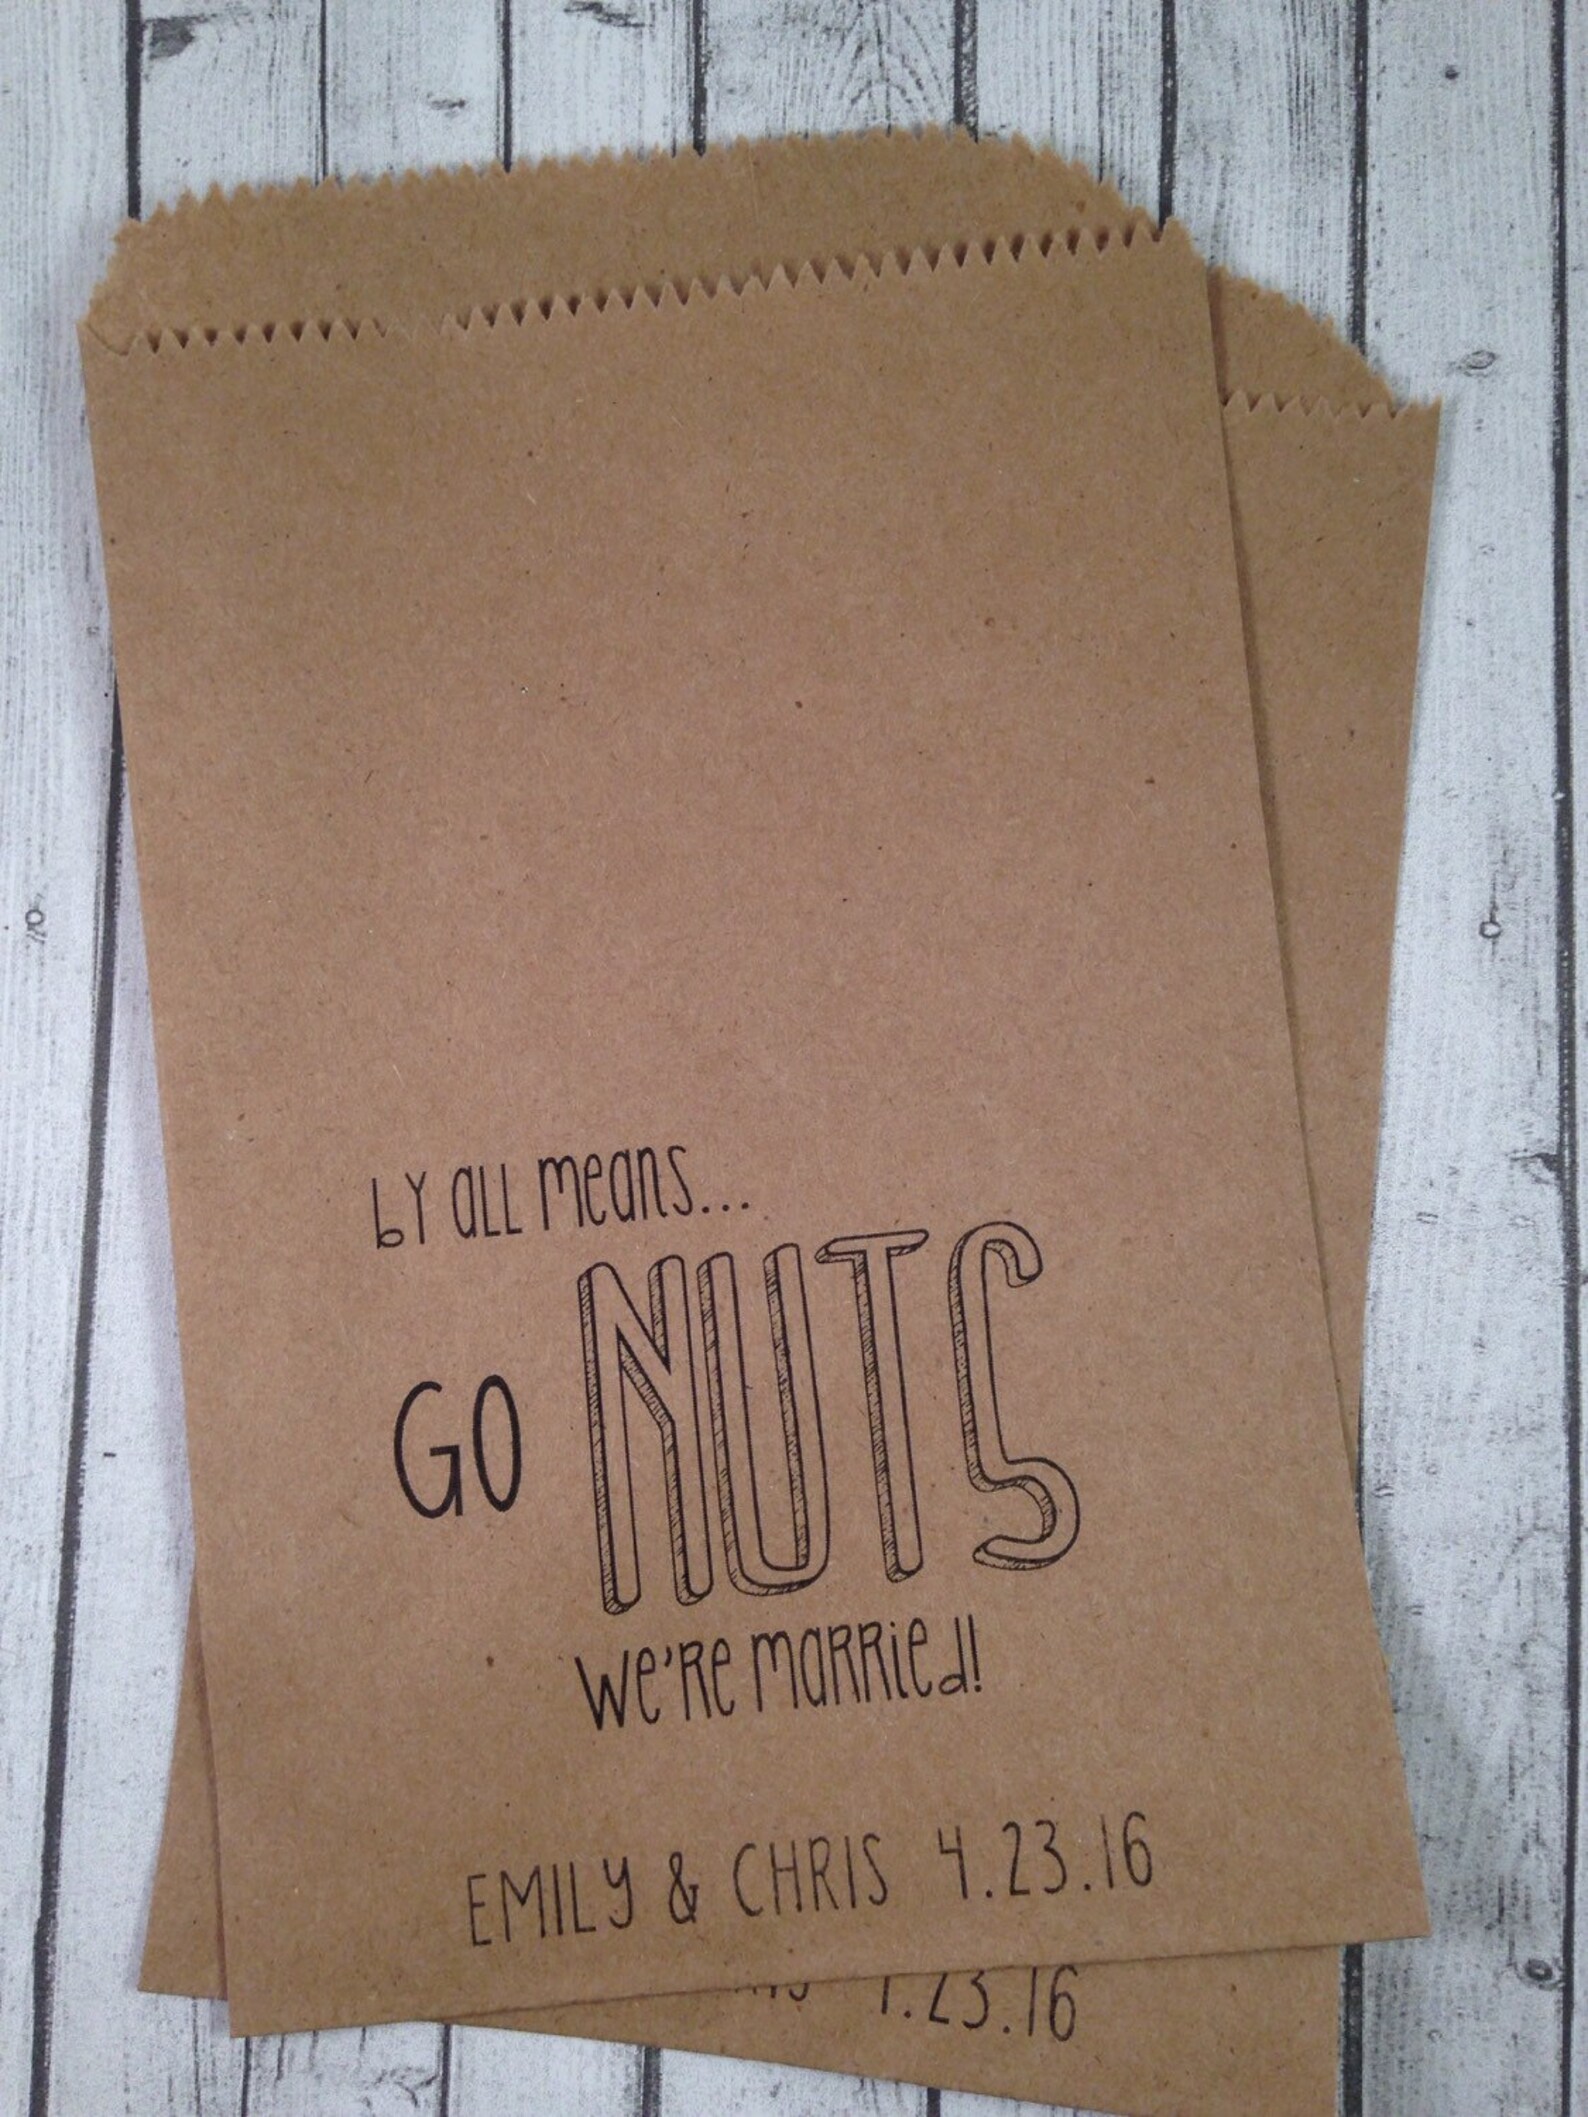 by all means...
GO NUTS
we're married!
EMILY & CHRIS 4.23.16
.23.16